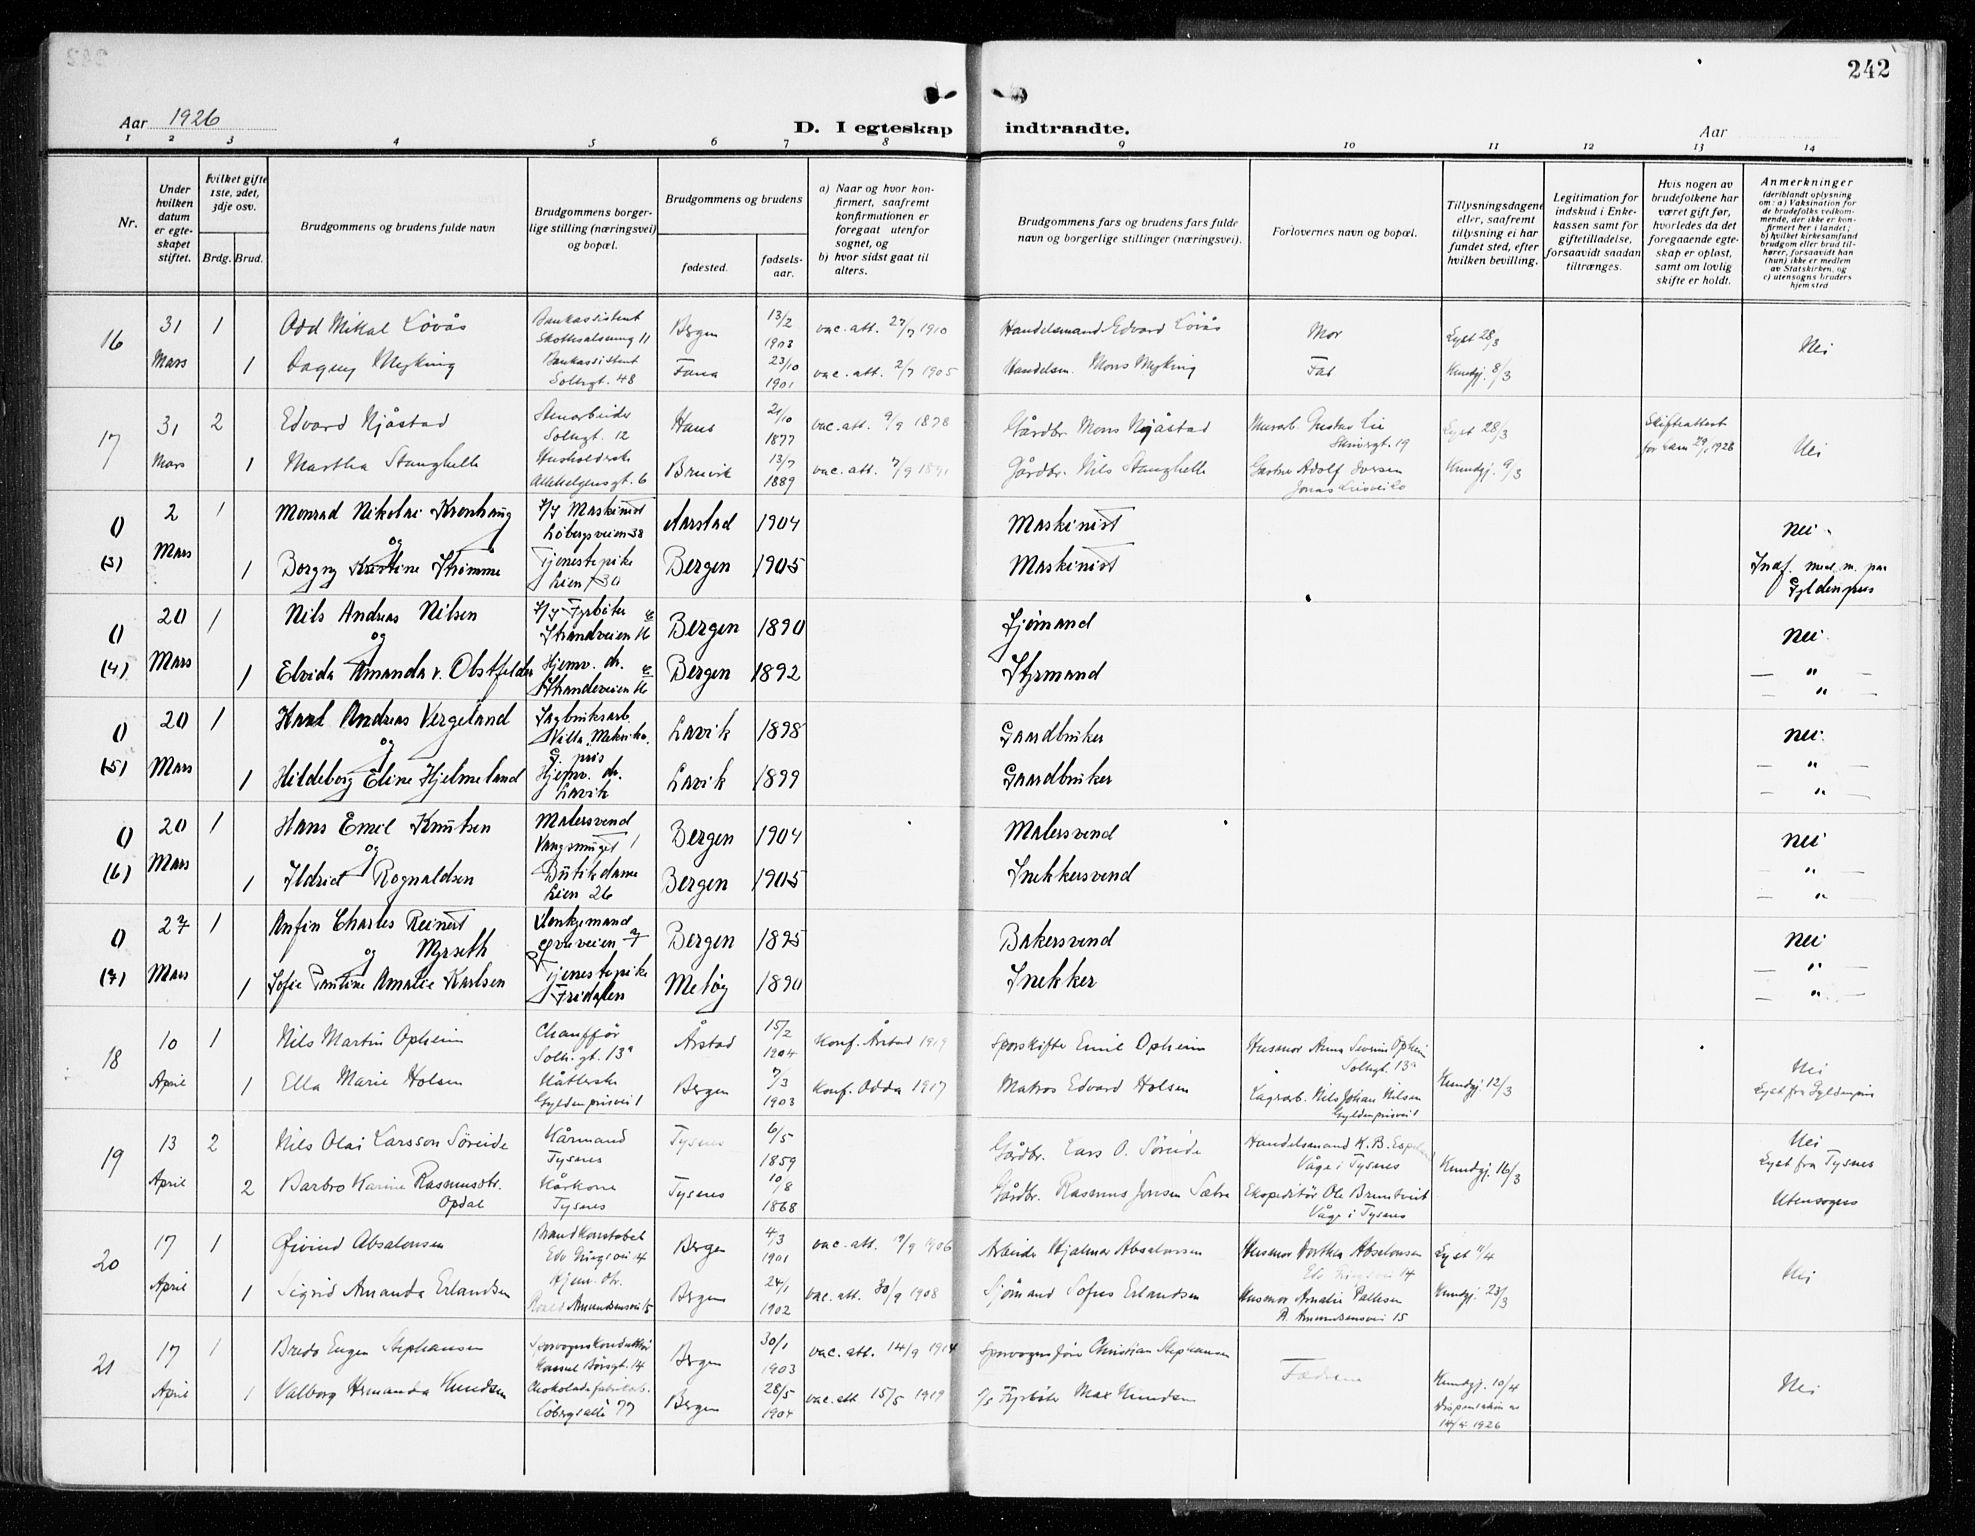 242
Aar 1926
D. I egteskap indtraadte.
Aar
1 2 3 4 5 6 7 8 9 10 11 12 13 14
Nr.
Under hvilken datum er egteskapet stiftet.
Hvilket gifte 1ste, 2det, 3dje osv.
Brdg. Brud.
Brudgommens og brudens fulde navn
Brudgommens borgerlige stilling (næringsvei) og bopæl.
Brudgommens og brudens
fødested.
fødselsaar.
a) Naar og hvor konfirmert, saafremt konfirmationen er foregaat utenfor sognet, og
b) hvor sidst gaat til alters.
Brudgommens fars og brudens fars fulde navn og borgerlige stillinger (næringsvei).
Forlovernes navn og bopæl.
Tillysningsdagene eller, saafremt tillysning ei har fundet sted, efter hvilken bevilling.
Legitimation for indskud i Enkekassen samt for giftetilladelse, forsaavidt saadan tiltrænges.
Hvis nogen av brudefolkene har været gift før, hvorledes da det foregaaende egteskap er opløst, samt om lovlig skifte er holdt.
Anmerkninger
(deriblandt oplysning om: a) Vaksination for de brudefolks vedkommende, der ikke er konfirmert her i landet; b) hvilket kirkesamfund brudgom eller brud tilhører, forsaavidt han (hun) ikke er medlem av Statskirken, og c) utensogns bruders hjemsted
16 31 1 Odd Mikal Løvås Bankassistent Skottesalsmug 11 Bergen 13/2 1903 vac. att. 27/7 1910 Handelsmand Edvard Løvås Mor Lyst 28/3 Nei
Mars 1 Dagny Myking Bankassistent Solhgt. 48 Fana 23/10 1901 vac. att. 2/7 1905 Handelsm. Mons Myking Far Kundgj. 8/3
17 31 2 Edvard Njåstad Stenarbeider Solhgt. 12 Haus 21/10 1877 vac. att. 9/9 1878 Gårdbr. Mons Njåstad Murarb. Gustav Lie Skivergt. 19 Lyst 28/3 Skifteattest Nei
Mars 1 Martha Stanghelle Husholderske Allehelgensgt. 6 Bruvik 13/7 1889 vac. att. 7/9 1891 Gårdbr. Nils Stanghelle Gartner Adolf Iversen Jonas Liesvei Kundgj. 9/3
0 2 1 Monrad Nikolai Kronhaug Maskinist Løbergsveien 38 Aarstad 1904 Maskinist Nei
og
(3) Mars 1 Borgny Kristine Strømme Tjenestepike Lien 30 Bergen 1905 Maskinist Indf. med m. paa Gyldenpris
0 20 1 Nils Andreas Nilsen Fyrbøter Strandveien 16 Bergen 1890 Sjømand Nei
og
(4) Mars 1 Elvida Amanda v. Obstfelder Hjemv. dr. Strandveien 16 Bergen 1892 Styrmand — " —
— " —
0 20 1 Karl Andreas Vergeland Sagbruksarb. Villa G. pris Lavik 1898 Gaardbruker Nei
og
(5) Mars 1 Hildeborg Eline Hjelmeland Hjemv. dr. Lavik Lavik 1899 Gaardbruker — " —
— " —
0 20 1 Hans Emil Knutsen Malersvend Vangsmuget 1 Bergen 1904 Malersvend Nei
og
(6) Mars 1 Ildrid Rognaldsen Butikdame Lien 26 Bergen 1905 Snekkersvend — " —
— " —
0 27 1 Anfin Charles Reinert Myrseth Bergen 1895 Bakersvend Nei
og
(7) Mars 1 Sofie Pauline Amalie Karlsen Tjenestepike Fridalen Meløy 1890 Snekker — " —
— " —
18 10 1 Nils Martin Opheim Chauffør Solh.gt. 13a Årstad 15/2 1904 Konf. Årstad 1919 Sporskifter Emil Opheim Husmor Anna Severine Opheim Solhgt. 13a Nei
April 1 Ella Marie Holsen Håtterske Gyldenprisvei 1 Bergen 7/3 1903 Konf. Odda 1917 Matros Edvard Holsen Lagerarb. Nils Johan Nilsen Gyldenprisvei 1 Kundgj. 12/3 Lyst fra Gyldenpris
19 13 2 Nils Olai Larsson Søreide Kårmand Tysnes Tysnes 6/5 1859 Gårdbr. Lars O. Søreide Handelsmand K. B. Våge i Tysnes Kundgj. 16/3 Nei Lyst fra Tysnes
April 2 Barbro Karine Rasmusdtr. Opdal Kårkone Tysnes Tysnes 10/8 1868 Gårdbr. Rasmus Jonsen Sætre Ekspeditør Ole Brundtveit Våge i Tysnes Utensogns
20 17 1 Øivind Absalonsen Brandkonstabel Edv. Griegsvei 14 Bergen 4/3 1901 vac. att. 19/9 1906 Arbeider Hjalmar Absalonsen Husmor Dorthea Absalonsen Edv. Griegsvei 14 Lyst 11/4 Nei
April 1 Sigrid Amanda Erlandsen Hjemv. dtr. Roald Amundsensvei 15 Bergen 24/1 1902 vac. att. 30/9 1908 Sjømand Sofus Erlandsen Husmor Amalie Pallesen R. Amundsensvei 15 Kundgj. 23/3
21 17 1 Bredo Eugen Stephansen Sporvognskonduktør Bergen 30/1 1903 vac. att. 14/9 1914 Sporvognsfører Christian Stephansen Fædrene Nei
April 1 Valborg Hermanda Knudsen Chokoladefabrikarb. Løbergsalle 77 Bergen 28/5 1904 vac. att. 15/5 1919 s/s Fyrbøter Max Knudsen Kundgj. 10/4 1926